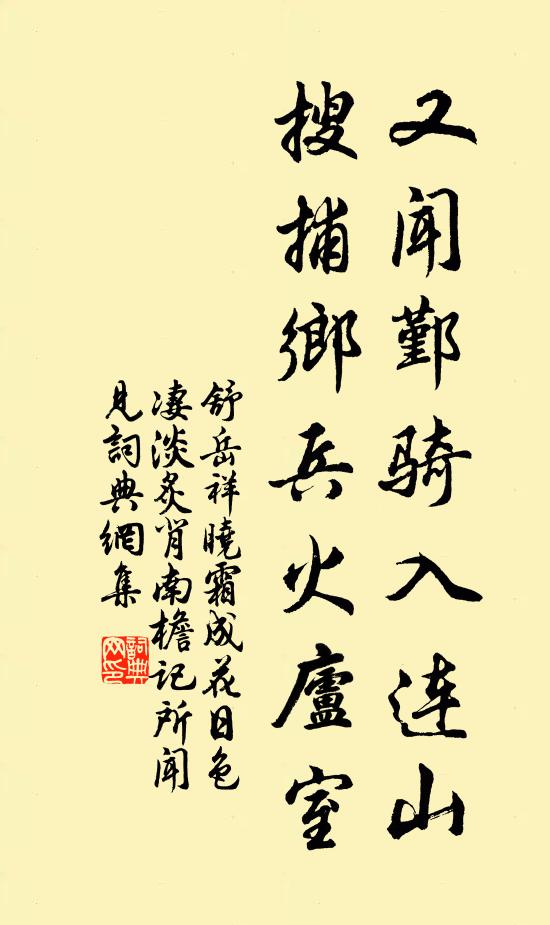 又闻鄞骑入连山
搜捕鄉兵火廬室
舒岳祥曉霜成花日色
凄淡炙背南檐记所闻
見詞典網集
詞典网印